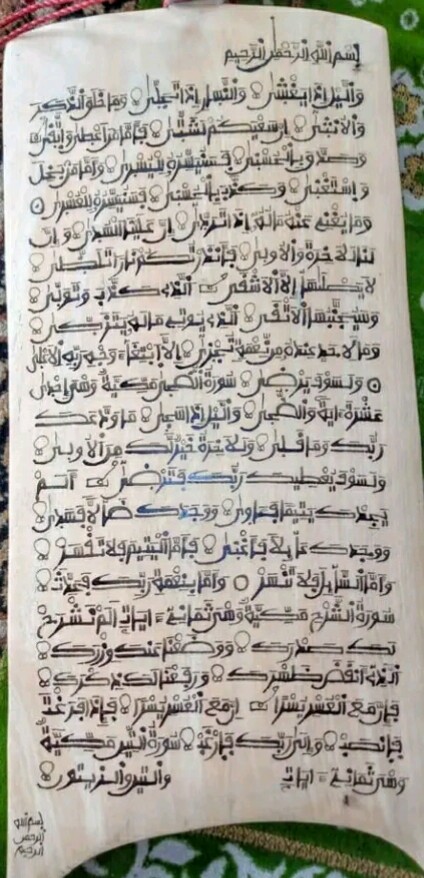 بسم الله الرحمن الرحيم
واليل إذا يغشى والنهار إذا تجلى وما خلق الذكر
والانثى إن سعيكم لشتى فأما من أعطى واتقى
وصدق بالحسنى فسنيسره لليسرى وأما من بخل
واستغنى وكذب بالحسنى فسنيسره للعسرى
وما يغنى عنه ماله إذا تردى إن علينا للهدى وإن
لنا للاخرة والاولى فأنذرتكم نارا تلظى
لا يصلاها إلا الاشقى الذى كذب وتولى
وسيجنبها الاتقى الذى يوتى ماله يتزكى
وما لاحد عنده من نعمة تجزى إلا ابتغاء وجه ربه الاعلى
ولسوف يرضى سورة الضحى مكية وهى إحدى
عشرة ءاية والضحى واليل إذا سجى ما ودعك
ربك وما قلى وللاخرة خير لك من الاولى
ولسوف يعطيك ربك فترضى ألم
يجدك يتيما فئاوى ووجدك ضالا فهدى
ووجدك عائلا فأغنى فأما اليتيم فلا تقهر
وأما السائل فلا تنهر وأما بنعمة ربك فحدث
سورة الشرح مكية وهى ثمانية ءايات ألم نشرح
لك صدرك ووضعنا عنك وزرك
الذى أنقض ظهرك ورفعنا لك ذكرك
فإن مع العسر يسرا إن مع العسر يسرا فإذا فرغت
فانصب وإلى ربك فارغب سورة التين مكية
وهى ثمانية ءايات والتين والزيتون
بسم الله
الرحمن
الرحيم